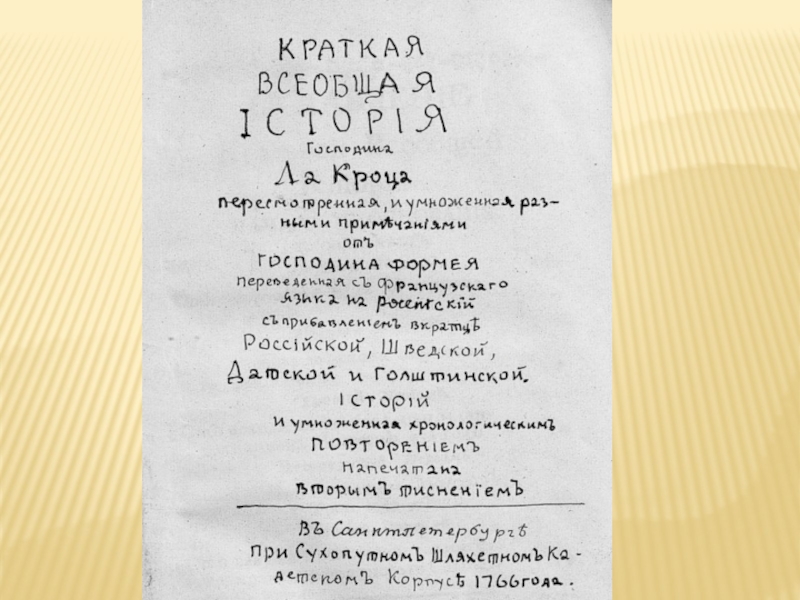 КРАТКАЯ
ВСЕОБЩАЯ
ІСТОРІЯ
Господина
Ла Кроца
пересмотренная, и умноженная раз-
ными примѣчаніями
отъ
ГОСПОДИНА ФОРМЕЯ
переведенная съ французскаго
языка на россійскій
съ прибавленіемъ вкратцѣ
Россійской, Шведской,
Датской и Голштинской.
ІСТОРІЙ
и умноженная хронологическимъ
ПОВТОРЕНІЕМЪ
напечатана
вторымъ тисненіемъ
Въ Санктпетербургѣ
при Сухопутномъ Шляхетномъ Ка-
детскомъ Корпусѣ 1766 года.